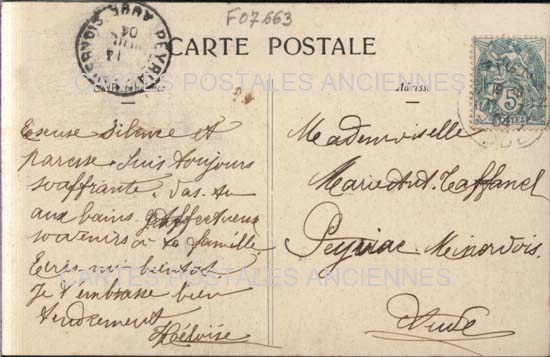 F07663
CARTE POSTALE
CARTES POSTALES ANCIENNES
Adresse
5
04
14
PEYRIAC
Excuse Silence et
paresse. Suis toujours
souffrante. Vas-tu
aux bains. affectueux
souvenirs à ta famille
Ecris-moi bientôt
Je t'embrasse bien
tendrement
Héloïse
Mademoiselle
Marie Taffanel
Peyriac-Minervois
Aude
CARTES POSTALES ANCIENNES